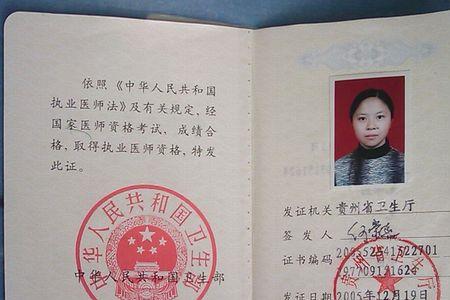 依照《中华人民共和国
执业医师法》及有关规定，经
国家医师资格考试，成绩合
格，取得执业医师资格，特发
此证。
中华人民共和国卫生部
中华人民共和国卫生部
发证机关 贵州省卫生厅
签发人
证书编码
197709121624
发证日期 2005年12月19日
贵州省卫生厅